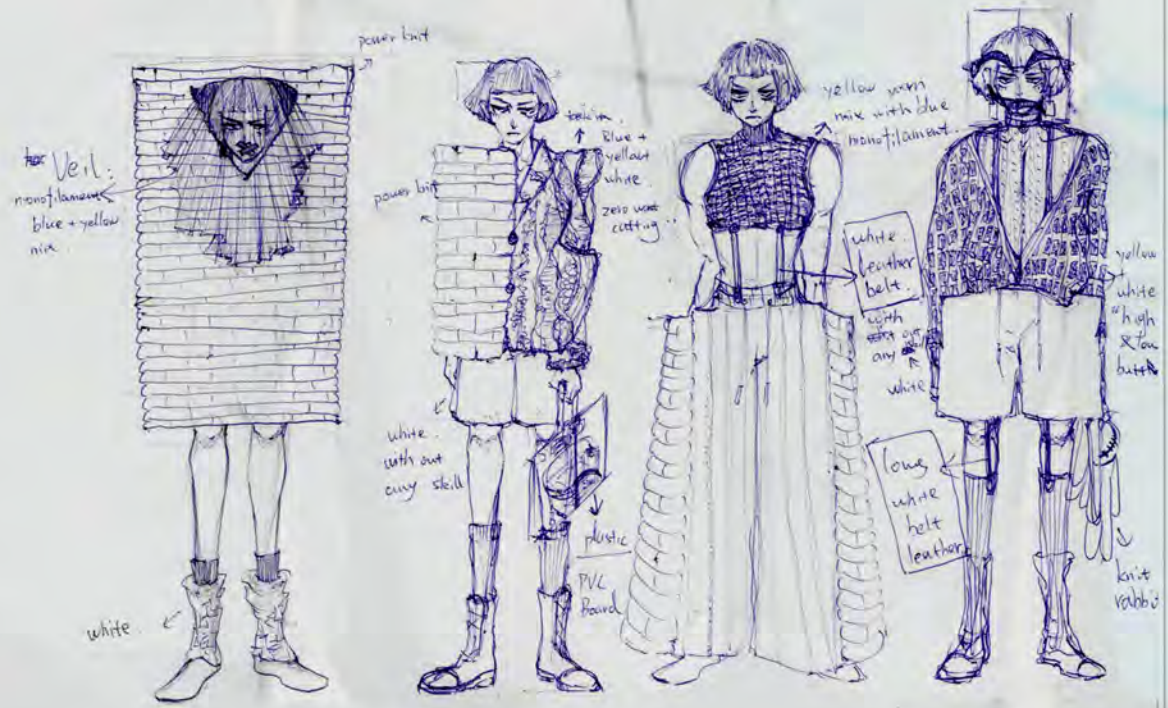 power knit
Veil:
monofilament
blue + yellow
mix
white.
power knit
Blue +
yellow
white.
zero waste
cutting
white.
with out
any skill
plastic
PVC
Board
yellow yarn
mix with blue
monofilament.
white.
leather
belt.
with
out
any
white
long
white
belt
leather
yellow
+
white
high
& low
knit
rabbit